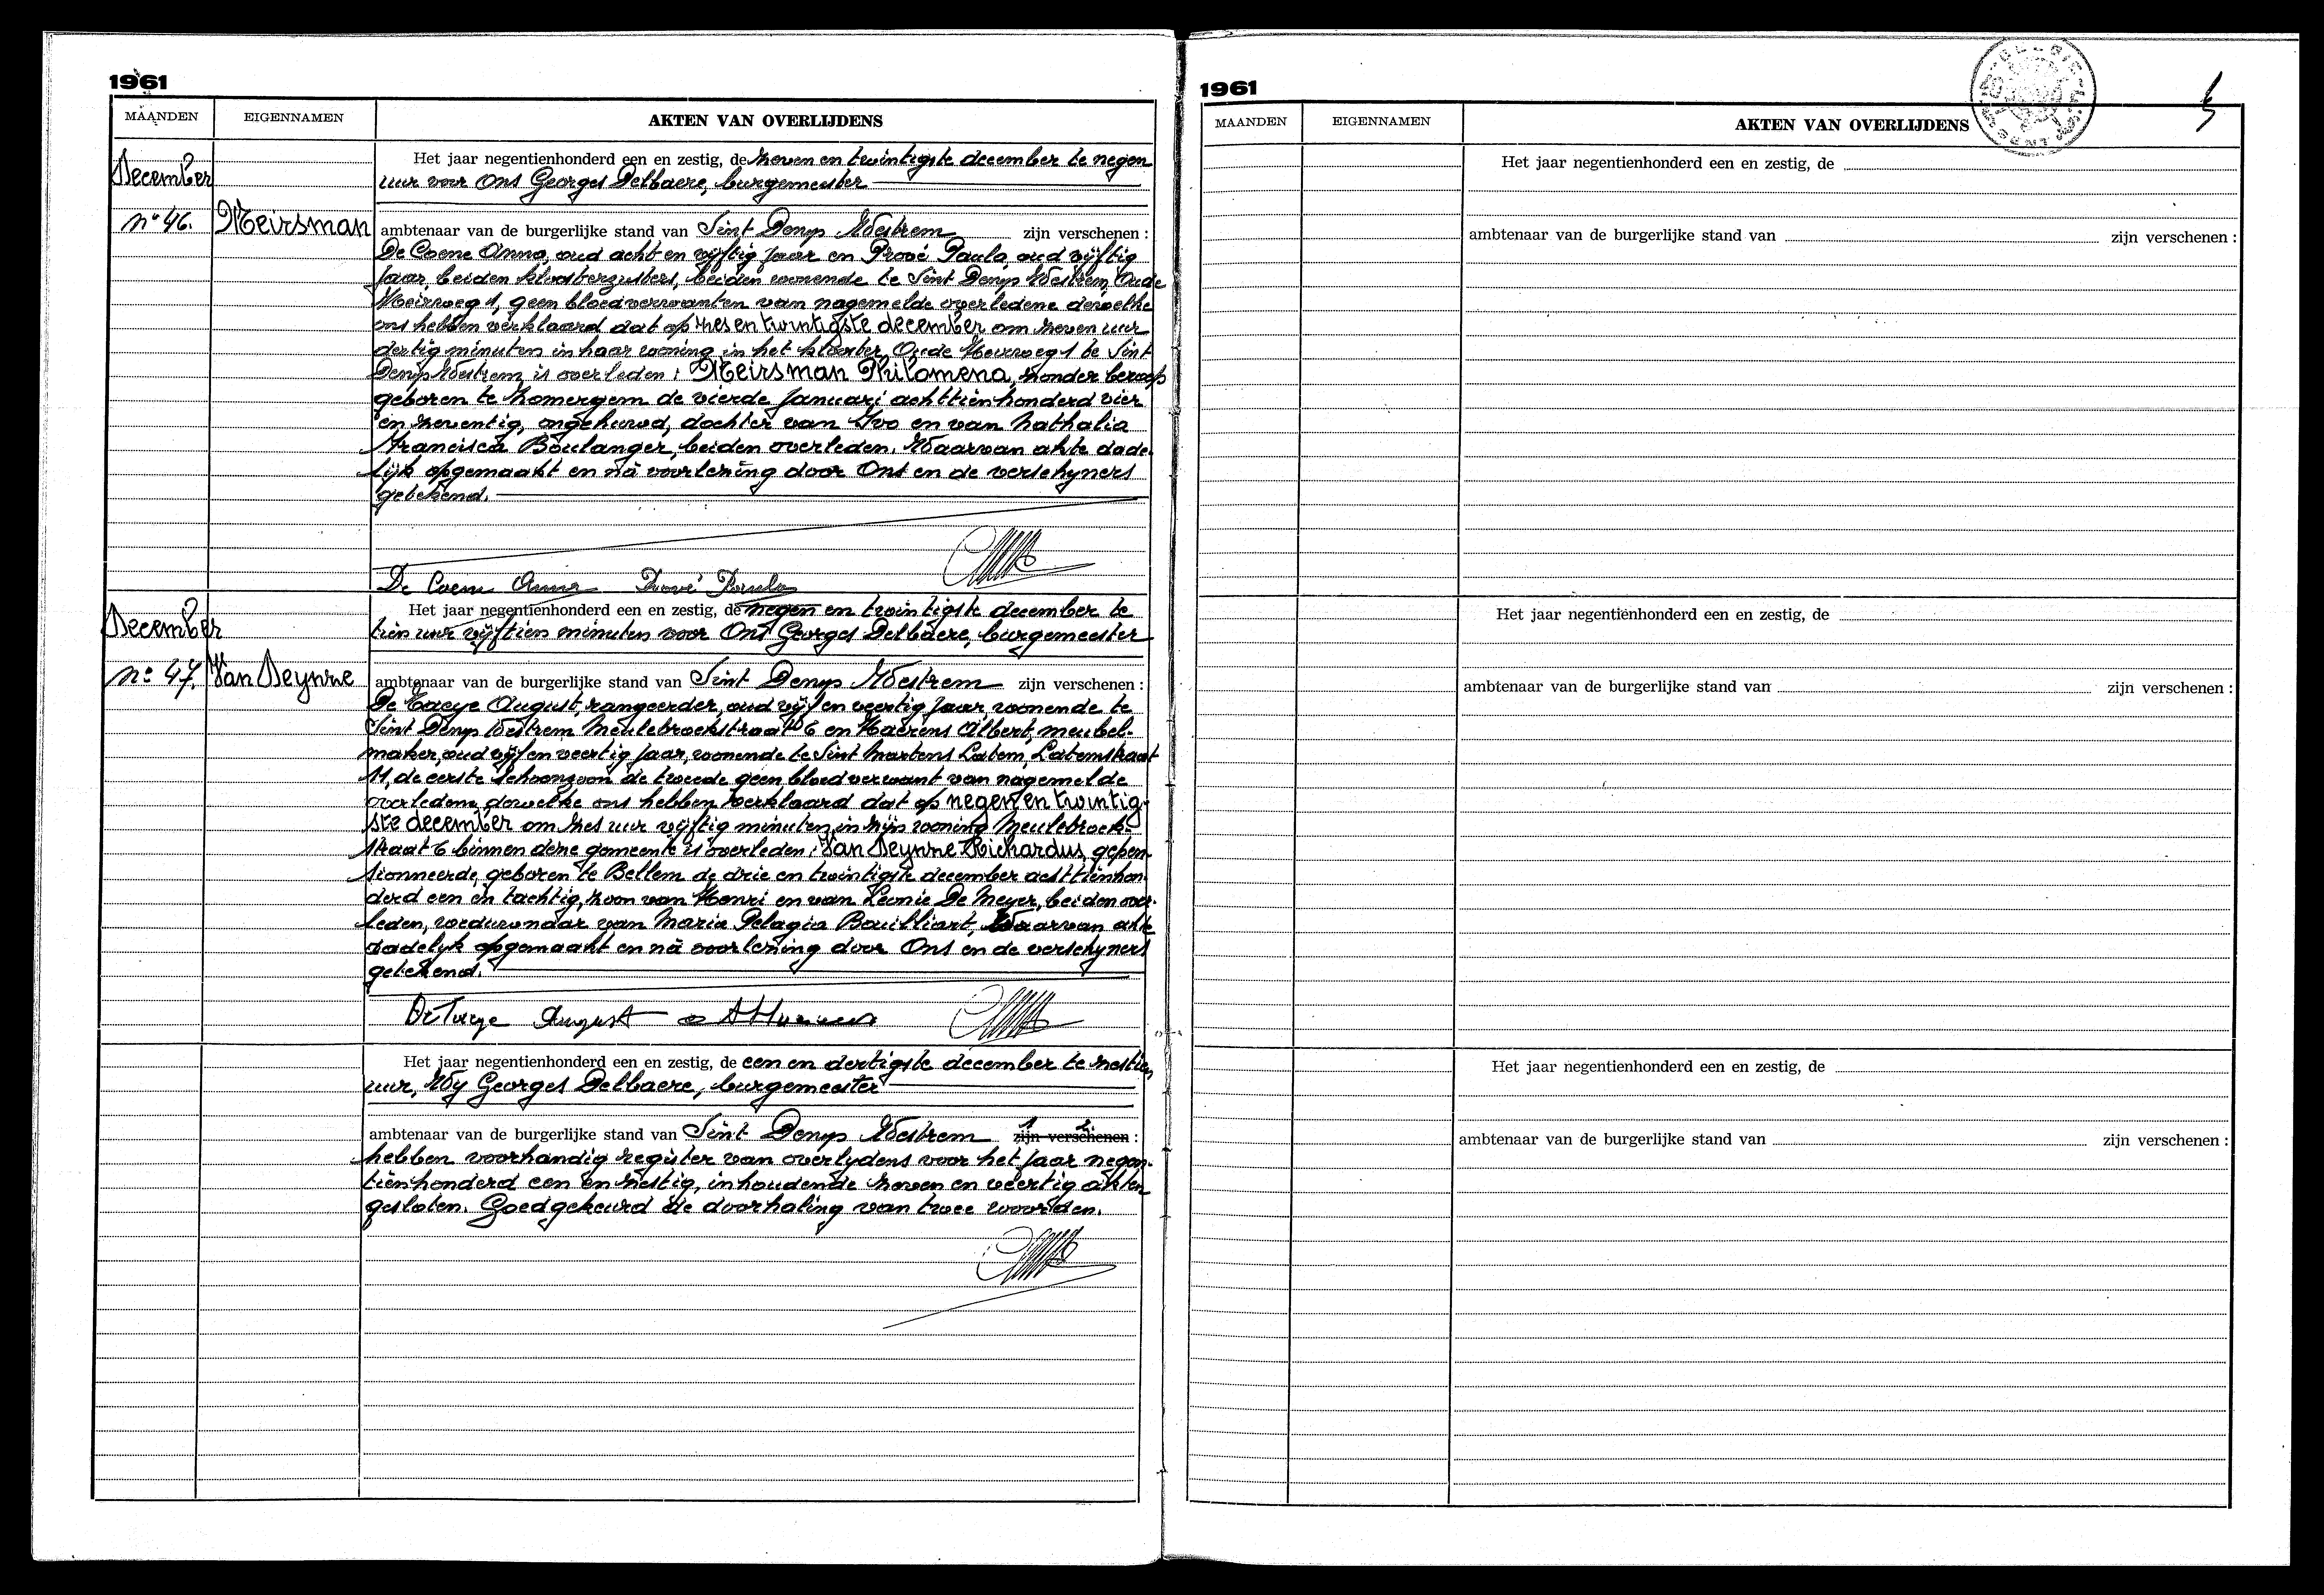 1961
MAANDEN EIGENNAMEN AKTEN VAN OVERLIJDENS
December
n° 46. Meirsman
Het jaar negentienhonderd een en zestig, de zeven en twintigste december te negen
uur voor Ons Georges Delbaere, burgemeester
ambtenaar van de burgerlijke stand van Sint Denys Westrem zijn verschenen :
De Coene Anna, oud acht en vijftig jaar en Prové Paula, oud vijftig
jaar, beiden kloosterzusters, beiden wonende te Sint Denys Westrem, Oude
Meirweg 1, geen bloedverwanten van nagemelde overledene dewelke
ons hebben verklaard dat op zes en twintigste december om zeven uur
dertig minuten in haar woning in het klooster, Oude Meirweg 1 te Sint
Denys Westrem is overleden : Meirsman Philomena, zonder beroep
geboren te Zomergem de vierde Januari achttienhonderd vier
en zeventig, ongehuwd, dochter van Ivo en van Nathalia
Francisca Boulanger, beiden overleden. Waarvan akte dade-
lijk opgemaakt en nà voorlezing door Ons en de verschyners
getekend.
De Coene Anna Prové Paula
December
n° 47. Van Deynze
Het jaar negentienhonderd een en zestig, de negen en twintigste december te
tien uur vijftien minuten voor Ons Georges Delbaere, burgemeester
ambtenaar van de burgerlijke stand van Sint Denys Westrem zijn verschenen :
De Taeye August, rangeerder, oud vijf en veertig jaar, wonende te
Sint Denys Westrem Meulebroekstraat 6 en Haerens Albert, meubel-
maker, oud vijf en veertig jaar, wonende te Sint Martens Latem, Latemstraat
11, de eerste schoonzoon de tweede geen bloedverwant van nagemelde
overledene dewelke ons hebben verklaard dat op negen en twintig-
ste december om zes uur vijftig minuten in zijn woning Meulebroek-
straat 6 binnen deze gemeente is overleden : Van Deynze Richardus, gepen-
sionneerde, geboren te Bellem de drie en twintigste december achttienhon-
derd een en tachtig, zoon van Henri en van Leonie De Meyer, beiden over-
leden, weduwnaar van Maria Pelagia Bouilliart. Waarvan akte
dadelyk opgemaakt en nà voorlezing door Ons en de verschyners
getekend.
De Taeye August
Het jaar negentienhonderd een en zestig, de een en dertigste december te zestien
uur, Wy Georges Delbaere, burgemeester
ambtenaar van de burgerlijke stand van Sint Denys Westrem 1 2 zijn verschenen :
hebben voorhandig register van overlydens voor het jaar negen-
tienhonderd een en zestig, inhoudende zeven en veertig akten
gesloten. Goedgekeurd de doorhaling van twee woorden.
1961
MAANDEN EIGENNAMEN AKTEN VAN OVERLIJDENS
Het jaar negentienhonderd een en zestig, de
ambtenaar van de burgerlijke stand van zijn verschenen :
Het jaar negentienhonderd een en zestig, de
ambtenaar van de burgerlijke stand van zijn verschenen :
Het jaar negentienhonderd een en zestig, de
ambtenaar van de burgerlijke stand van zijn verschenen :